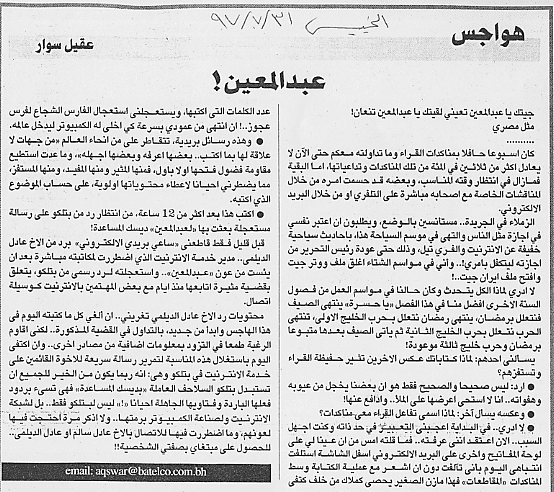 الخميس ٩٧/٧/٣١
هواجس
عقيل سوار
عبدالمعين!
جيتك يا عبدالمعين تعيني لقيتك يا عبدالمعين تنعان!
مثل مصري
..........
كان اسبوعا حافلا بمناكدات القراء وما تداولته معكم حتى الآن لا
يعادل اكثر من ثلاثين في المئة من تلك المناكدات وتداعياتها، اما البقية
فمازال في انتظار وقته المناسب، وبعضه قد حسمت امره من خلال
المناقشات الخاصة مع اصحابه مباشرة على التلفري او من خلال البريد
الالكتروني.
الزملاء في الجريدة.. مستانسين بالوضع، ويطلبون ان اعتبر نفسي
في اجازة مثل الناس والتهى في موسم السياحة هذا، بأحاديث سياحية
خفيفة عن الانترنيت والفري تيل، وذلك حتى عودة رئيس التحرير من
اجازته ليتكفل بأمري!.. وآني في مواسم الشتاء اغلق ملف ووتر جيت
وافتح ملف ايران جيت..!
لا ادري لماذا الكل يتحدث وكأن حالنا في مواسم العمل من فصول
السنة الاخرى افضل منا في هذا الفصل «يا حسرة» ينتهي الصيف
فنتعلل برمضان، ينتهي رمضان نتعلل بحرب الخليج الاولى، تنتهي
الحرب نتعلل بحرب الخليج الثانية ثم يأتي الصيف بعدها متبوعا
برمضان وحرب خليج ثالثة موعودة!
يسألني احدهم: لماذا كتاباتك عكس الاخرين تثير حفيظة القراء
وتستفزهم؟
● ارد: ليس صحيحا والصحيح فقط هو ان بعضنا يخجل من عيوبه
وهفواته.. انا لا استحي اعرضها على الملأ.. وادافع عنها!
● وعكسه يسأل آخر: لماذا اسمى تفاعل القراء معي مناكدات؟
● لا ادري.. في البداية اعجبني التعبير في حد ذاته وكنت اجهل
السبب.. الآن اعتقد انني عرفته.. فما قلته امس من ان عينا لي على
لوحة المفاتيح واخرى على البريد الالكتروني اسفل الشاشة استلفت
انتباهي اليوم بأني تآلفت دون ان اشعر مع عملية الكتابة وسط
المناكدات «المقاطعات» فهذا مازن الصغير يحصي كملاك من خلف كتفي
عدد الكلمات التي اكتبها، ويستعجلني استعجال الفارس الشجاع لفرس
عجوز..! ان انتهى من عمودي بسرعة كي اخلى له الكمبيوتر ليدخل عالمه.
● وهذه رسائل بريدية، تتقاطر على من انحاء العالم «من جهات لا
علاقة لها بما اكتب.. بعضها اعرفه وبعضها اجهله»، وما عدت استطيع
مقاومة فضول فتحها اولا بأول، فمنها المثير ومنها المفيد، ومنها المستفز،
مما يضطرني احيانا لاعطاء محتوياتها اولوية، على حساب الموضوع
الذي اكتبه.
● اكتب هذا بعد اكثر من 12 ساعة، من انتظار رد من بتلكو على رسالة
مستعجلة بعثت بها «لعبدالمعين» ديسك المساعدة!
قبل قليل فقط قاطعني «ساعي بريدي الالكتروني» برد من الاخ عادل
الديلمي.. مدير خدمة الانترنيت الذي اضطررت لمكاتبته مباشرة بعد ان
يئست من عون «عبدالمعين».. واستعجلته لرد رسمي من بتلكو، يتعلق
بقضية مثيرة اتابعها منذ ايام مع بعض المهتمين بالانترنيت كوسيلة
اتصال.
محتويات رد الاخ عادل الديلمي تغريني.. ان الغي كل ما كتبته اليوم في
هذا الهاجس وابدا من جديد، بالتداول في القضية المذكورة.. لكني اقاوم
الرغبة طمعا في التزود بمعلومات اضافية من مصادر اخرى.. وان اكتفى
اليوم باستغلال هذه المناسبة لتمرير رسالة سريعة للاخوة القائمين على
خدمة الانترنيت في بتلكو وهي: انه ربما يكون من الخير للجميع ان
تستبدل بتلكو السلاحف العاملة «بديسك المساعدة» فهي تسيء بردود
فعلها الباردة وفتاويها الجاهلة احيانا «!» ليس لبتلكو فقط.. بل لشبكة
الانترنيت ولصناعة الكمبيوتر برمتها.. ولا اذكر مرة احتجت فيها
لعونهم، وما اضطررت فيها للاتصال بالاخ عادل سالم او عادل الديلمي..
للحصول على مبتغاي بصفتي الشخصية!!
email: aqswar@batelco.com.bh